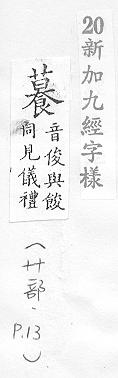 20新加九經字樣
音俊與餕
同見儀禮
（艹部．P.13）